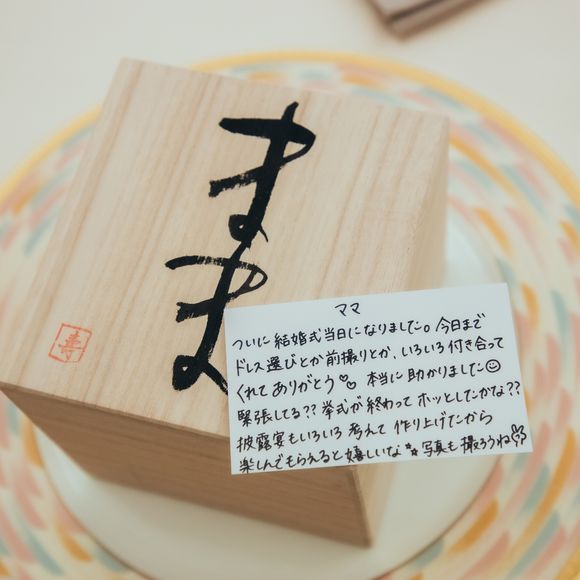 まま
寿
ママ
ついに結婚式当日になりました。今日まで
ドレス選びとか前撮りとか、いろいろ付き合って
くれてありがとう♡♡ 本当に助かりました☺
緊張してる?? 挙式が終わってホッとしたかな??
披露宴もいろいろ考えて作り上げたから
楽しんでもらえると嬉しいな 写真も撮ろうね